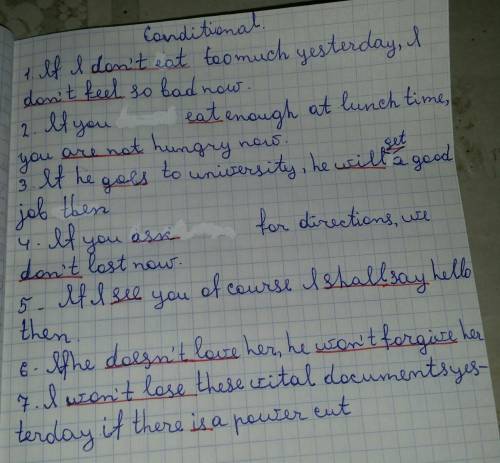 Conditional.
1. If I don't eat too much yesterday, I
don't feel so bad now.
2. If you eat enough at lunch time,
you are not hungry now.
3. If he goes to university, he will get a good
job then
4. If you ask for directions, we
don't lost now.
5. If I see you of course I shall say hello
then.
6. If he doesn't love her, he won't forgive her
7. I won't lose these vital documents yes-
terday if there is a power cut